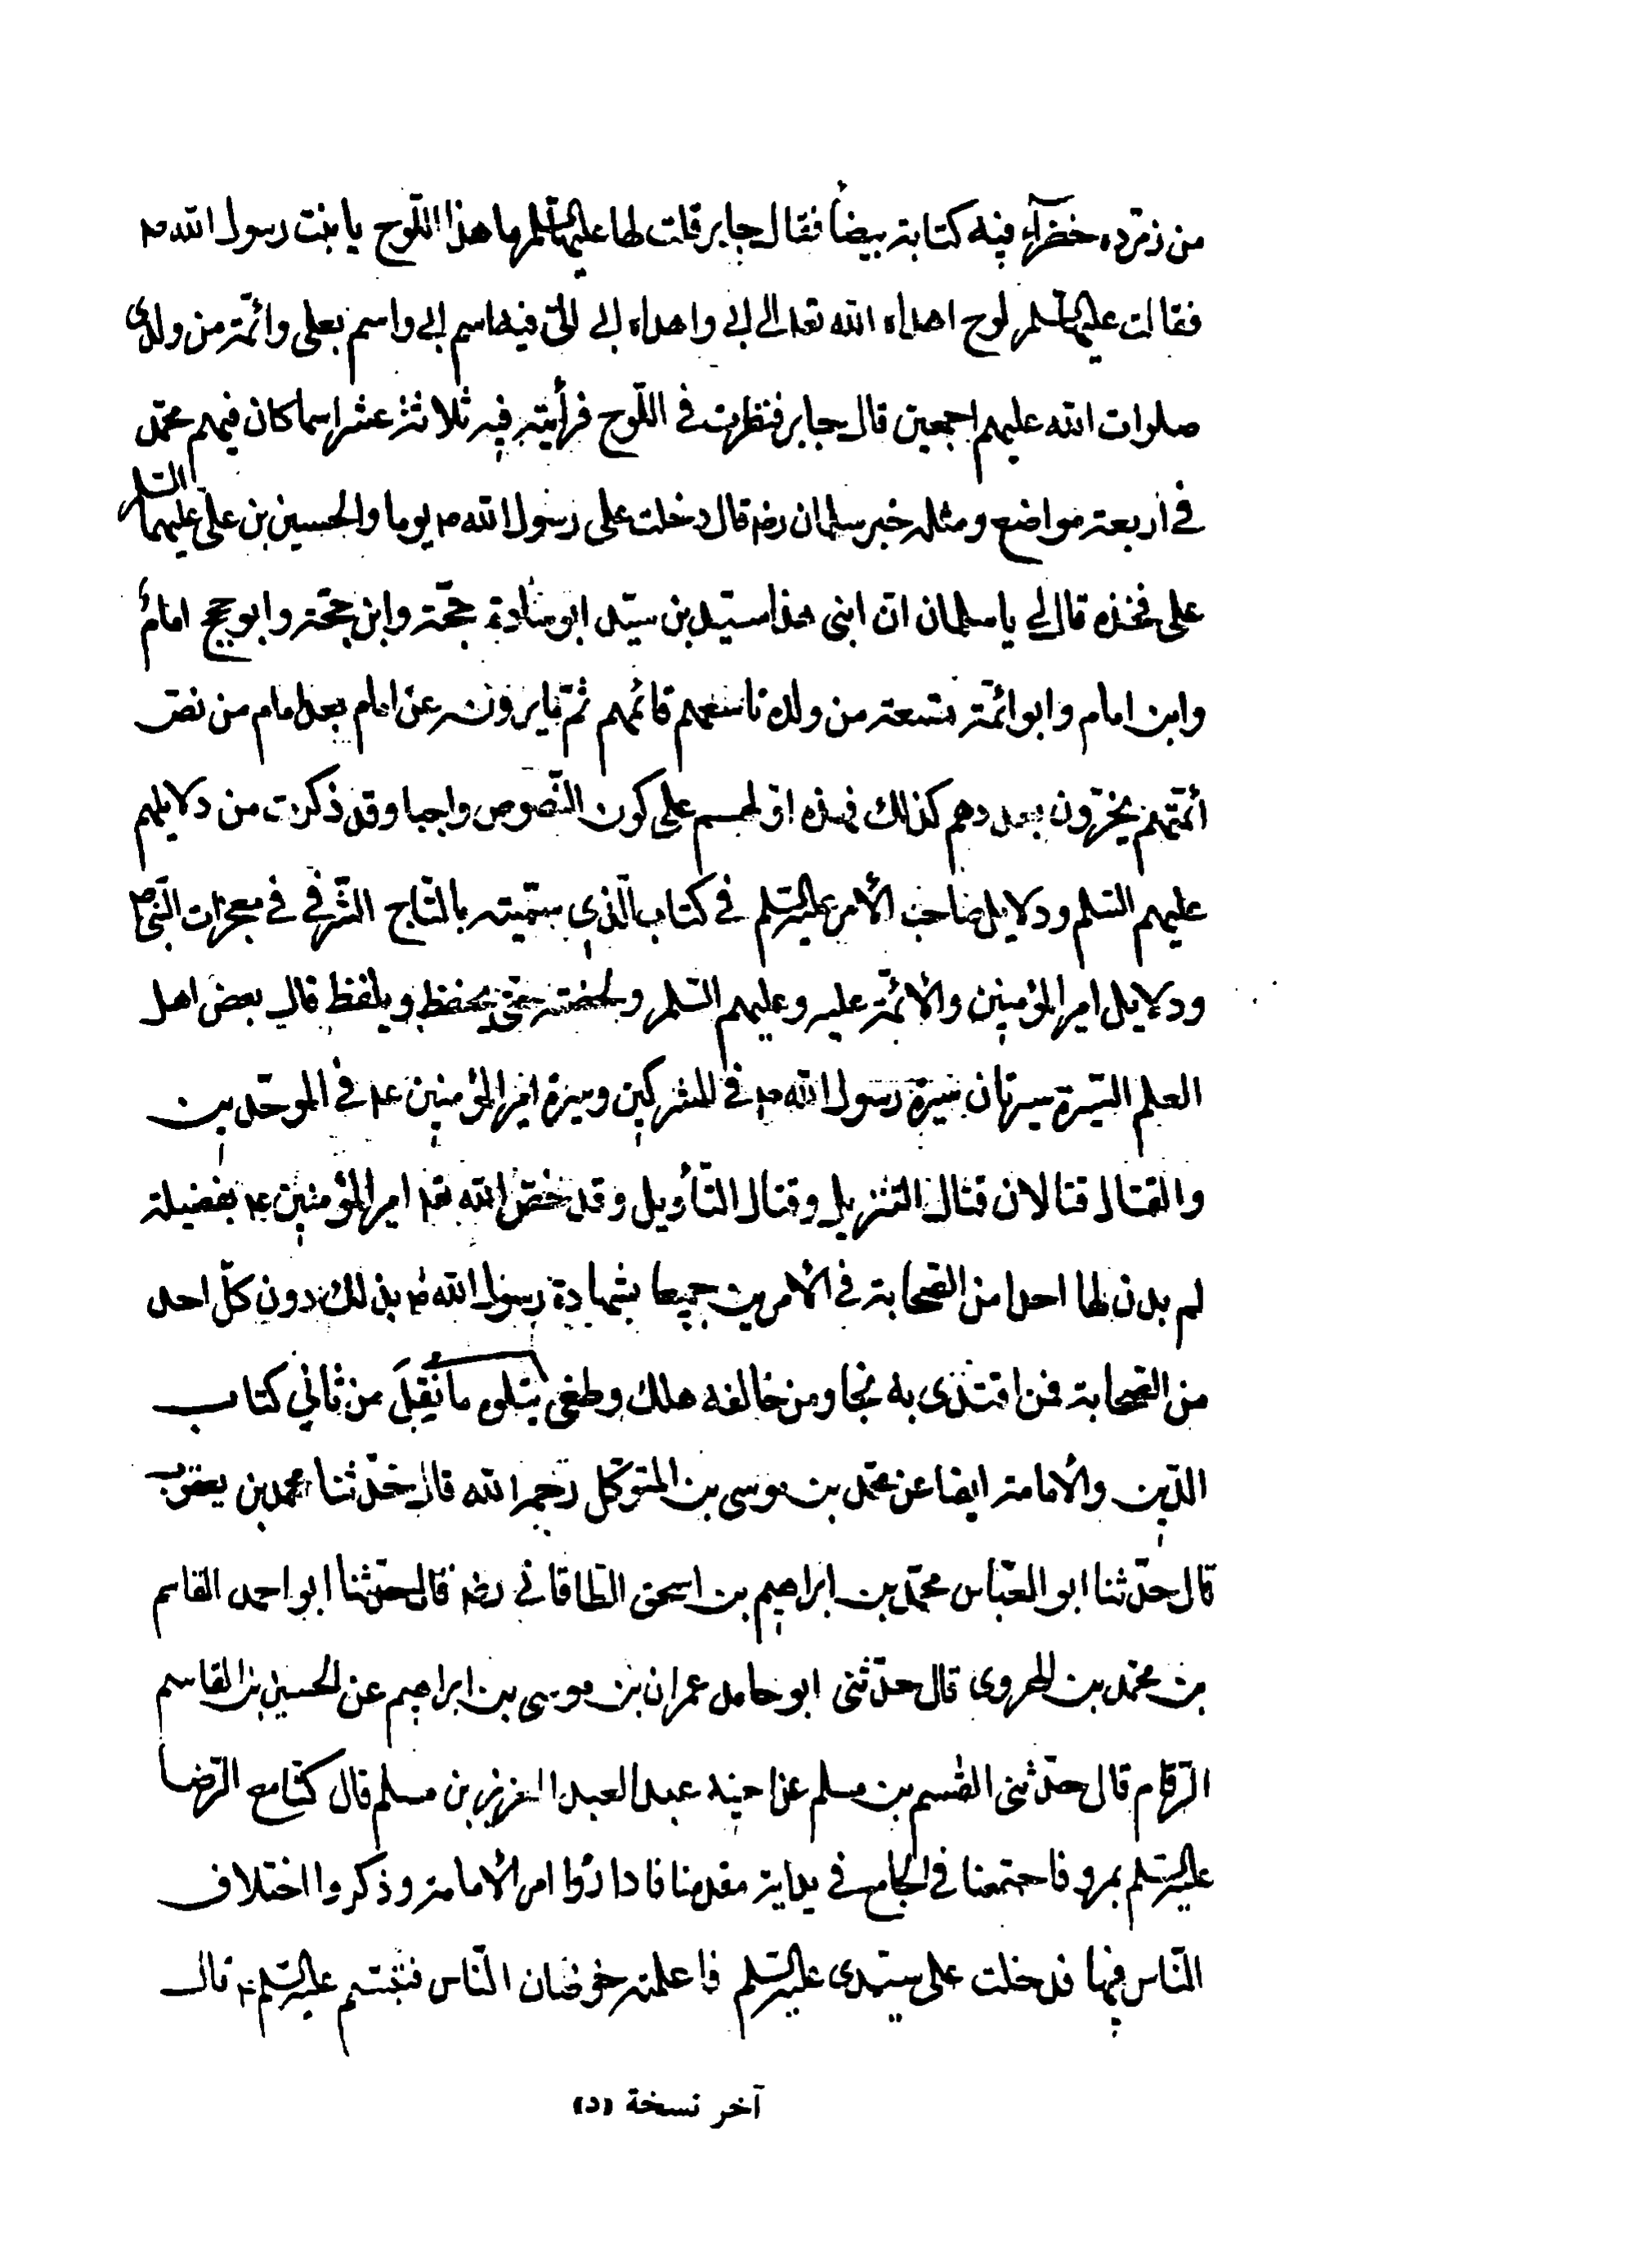 من زمرده خضرآء فيه كتابة بيضاً فقال جابر قلت لها عليها السلم ما هذا اللّوح يا بنت رسول الله ص
فقالت عليها السلم لوح اهداه الله تعالى الى ابى واهداه ابى الىّ فيه اسم ابى واسم بعلى وائمّة من ولدى
صلوات الله عليهم اجمعين قال جابر فنظرت فى اللّوح فرأيته فيه ثلاثة عشر اسما كان فيهم محمّد
فى اربعة مواضع ومثله خبر سلمان رض قال دخلت على رسول الله ص يوما والحسين بن على عليهما السلم
على فخذه قال لى يا سلمان انّ ابنى هذا سيّد بن سيّد ابو سادة حجّة وابن حجّة وابو حجج امامٌ
وابن امام وابو ائمّة تسعة من ولده تاسعهم قائمهم ثم ما يروونه عن امام بعد امام من نصّ
ائمّتهم على كون النّصوص واجبا وقد ذكرت من دلايلهم
عليهم السلم ودلايل صاحب الأمر عليه السّلم فى كتاب الّذى سمّيته بالتّاج الشّرفى فى معجزات النّبىّ ص
ودلايل امير المؤمنين والأئمّة عليه وعليهم السّلم ولخصته حتى يحفظ ويلفظ قال بعض اهل
العلم السّيرة سيرتان سيرة رسول الله ص فى المشركين وسيرة امير المؤمنين ع فى الموحّدين
والقتال قتالان قتال التّنزيل وقتال التّأويل وقد خصّ الله تعا امير المؤمنين ع بفضيلة
لم يدن لها احدا من الصّحابة فى الأمرين جميعا بشهادة رسول الله ص بذلك دون كلّ احد
من الصّحابة فمن اقتدى به نجا ومن خالفه هلك وطغى يتلوه ما نُقِلَ من ثانى كتاب
الدّين والأمامة ايضا عن محمّد بن موسى بن المتوكّل رحمه الله قال حدّثنا محمد بن يعقوب
قال حدّثنا ابو العبّاس محمّد بن ابراهيم بن اسحق الطّالقانى رض قال حدّثنا ابو احمد القاسم
بن محمّد بن الهروى قال حدّثنى ابو حامد عمران بن موسى بن ابراهيم عن الحسين بن القاسم
الرّقام قال حدّثنى القسم بن مسلم عن اخيه عبد العبد العزيز بن مسلم قال كنّا مع الرّضا
عليه السّلم بمرو فاجتمعنا فى الجامع فى بداية مقدمنا فاداروا امر الأمامة وذكروا اختلاف
النّاس فيها فدخلت على سيّدى عليه السّلم فاعلمته خوضان النّاس فتبسّم عليه السّلم ثم قال
آخر نسخة (د)